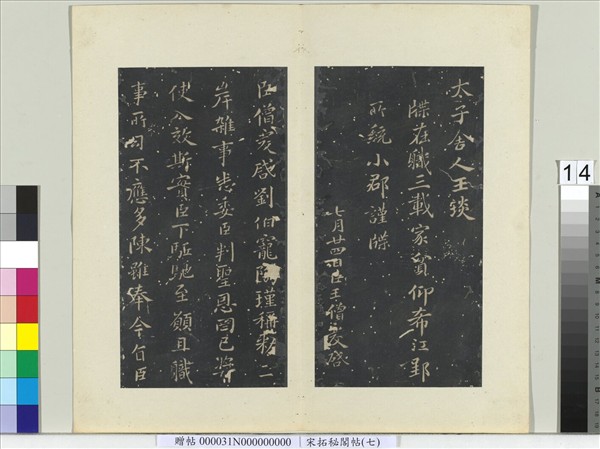 太子舍人王琰
牒在職三載家貧仰希江郢
所統小郡謹牒
七月廿四日臣王僧虔啓
臣僧虔啓劉伯寵
瑾稱
二
岸雜事悉委臣判聖恩罔已
使入效斯實臣下驅馳至願且職
事所司不應多陳雖奉今旨臣
14
贈帖 000031N000000000
宋拓秘閣帖(七)